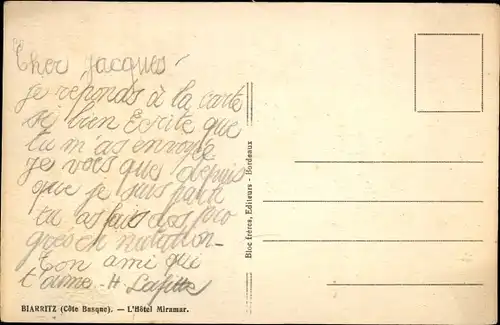 Cher Jacques
je réponds à la carte
si bien Ecrite que
tu m'as envoyé
je vois que depuis
que je suis parti
tu as fais dos pro
grès en natation
Ton ami qui
t'aime - H Lafitte
BIARRITZ (Côte Basque). — L'Hôtel Miramar.
Bloc frères, Editeurs - Bordeaux